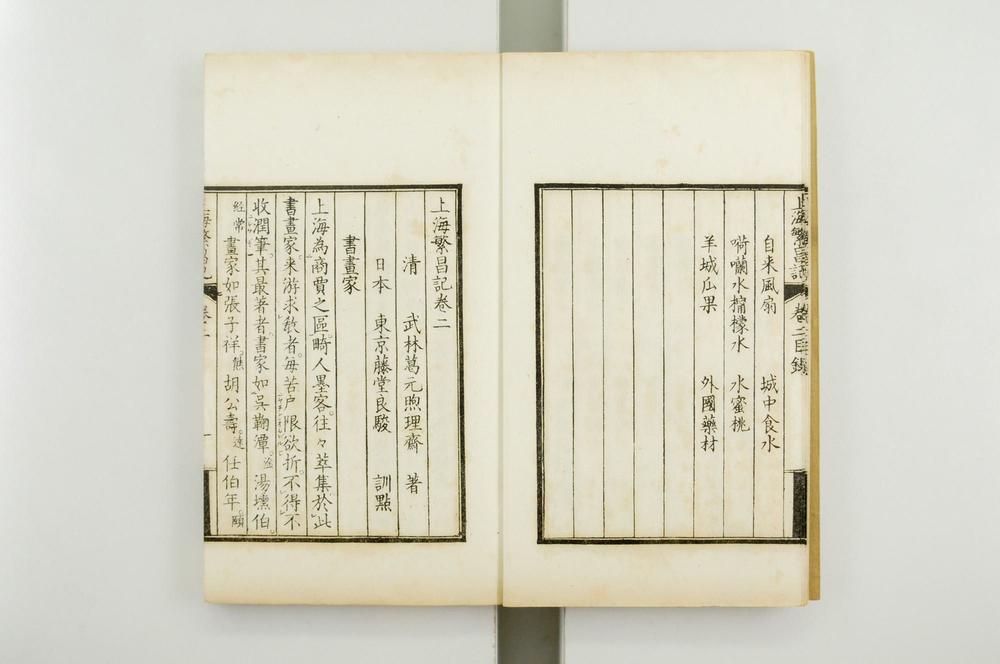 上海繁昌記 卷二目錄
自来風扇 城中食水
嗬囒水檸檬水 水蜜桃
羊城瓜果 外國藥材
上海繁昌記卷二
清 武林葛元煦理齋 著
日本 東京藤堂良駿 訓點
書畫家
上海為商賈之區。畸人墨客。往々萃集於此
書畫家。来游求敎者。每苦户限欲折。不得不
收潤筆。其最著者。書家如吳鞠潭。淦 湯壎伯。
经常 畫家如張子祥。熊 胡公壽。遠 任伯年。頤
上海繁昌記 卷二 一